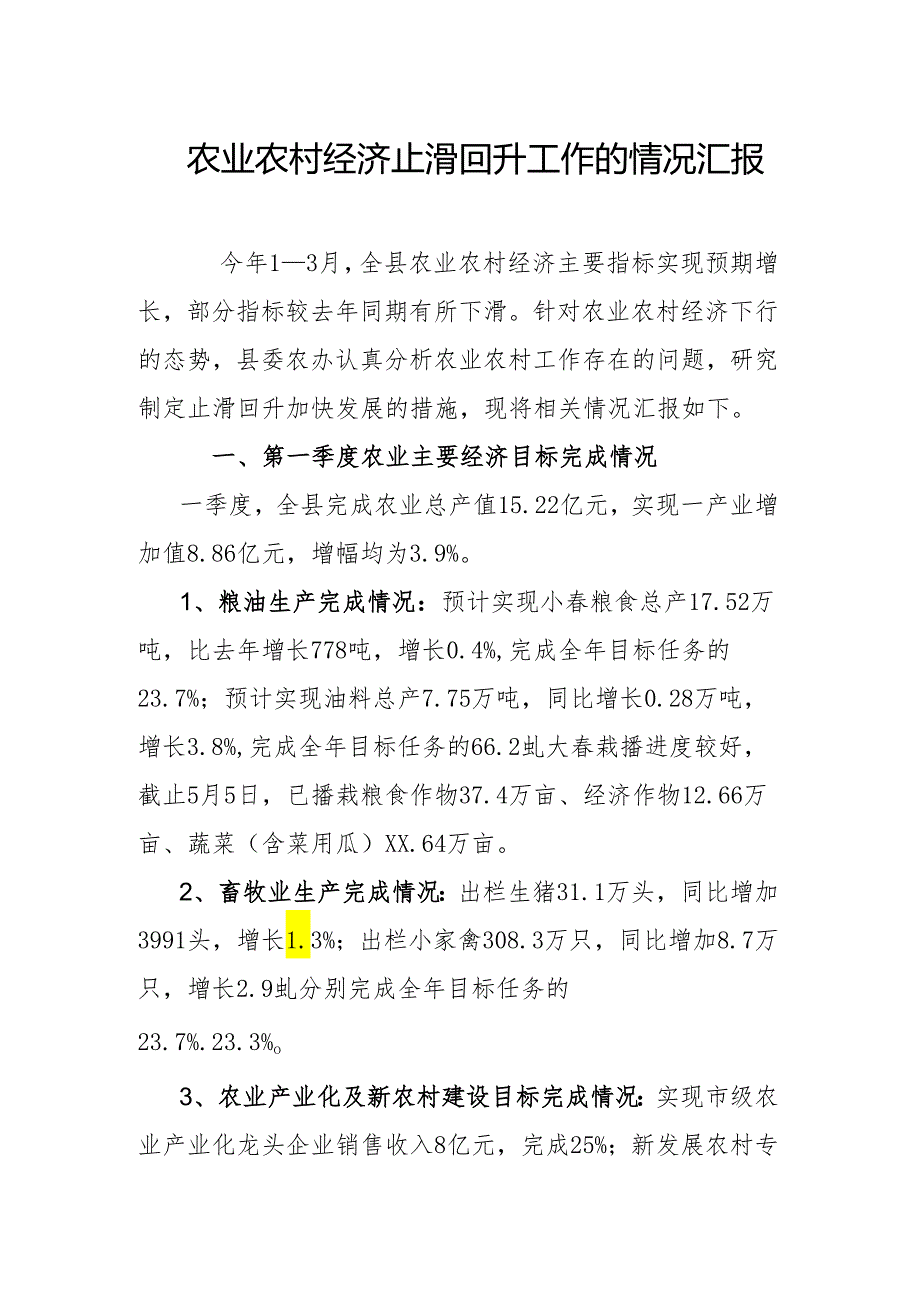 农业农村经济止滑回升工作的情况汇报
今年1—3月,全县农业农村经济主要指标实现预期增
长，部分指标较去年同期有所下滑。针对农业农村经济下行
的态势，县委农办认真分析农业农村工作存在的问题，研究
制定止滑回升加快发展的措施，现将相关情况汇报如下。
一、第一季度农业主要经济目标完成情况
一季度，全县完成农业总产值15.22亿元，实现一产业增
加值8.86亿元，增幅均为3.9%。
1、粮油生产完成情况：预计实现小春粮食总产17.52万
吨，比去年增长778吨，增长0.4%,完成全年目标任务的
23.7%；预计实现油料总产7.75万吨，同比增长0.28万吨，
增长3.8%,完成全年目标任务的66.2虬大春栽播进度较好，
截止5月5日，已播栽粮食作物37.4万亩、经济作物12.66万
亩、蔬菜（含菜用瓜）XX.64万亩。
2、畜牧业生产完成情况：出栏生猪31.1万头，同比增加
3991头，增长1.3%；出栏小家禽308.3万只，同比增加8.7万
只，增长2.9虬分别完成全年目标任务的
23.7%.23.3%。
3、农业产业化及新农村建设目标完成情况：实现市级农
业产业化龙头企业销售收入8亿元，完成25%；新发展农村专